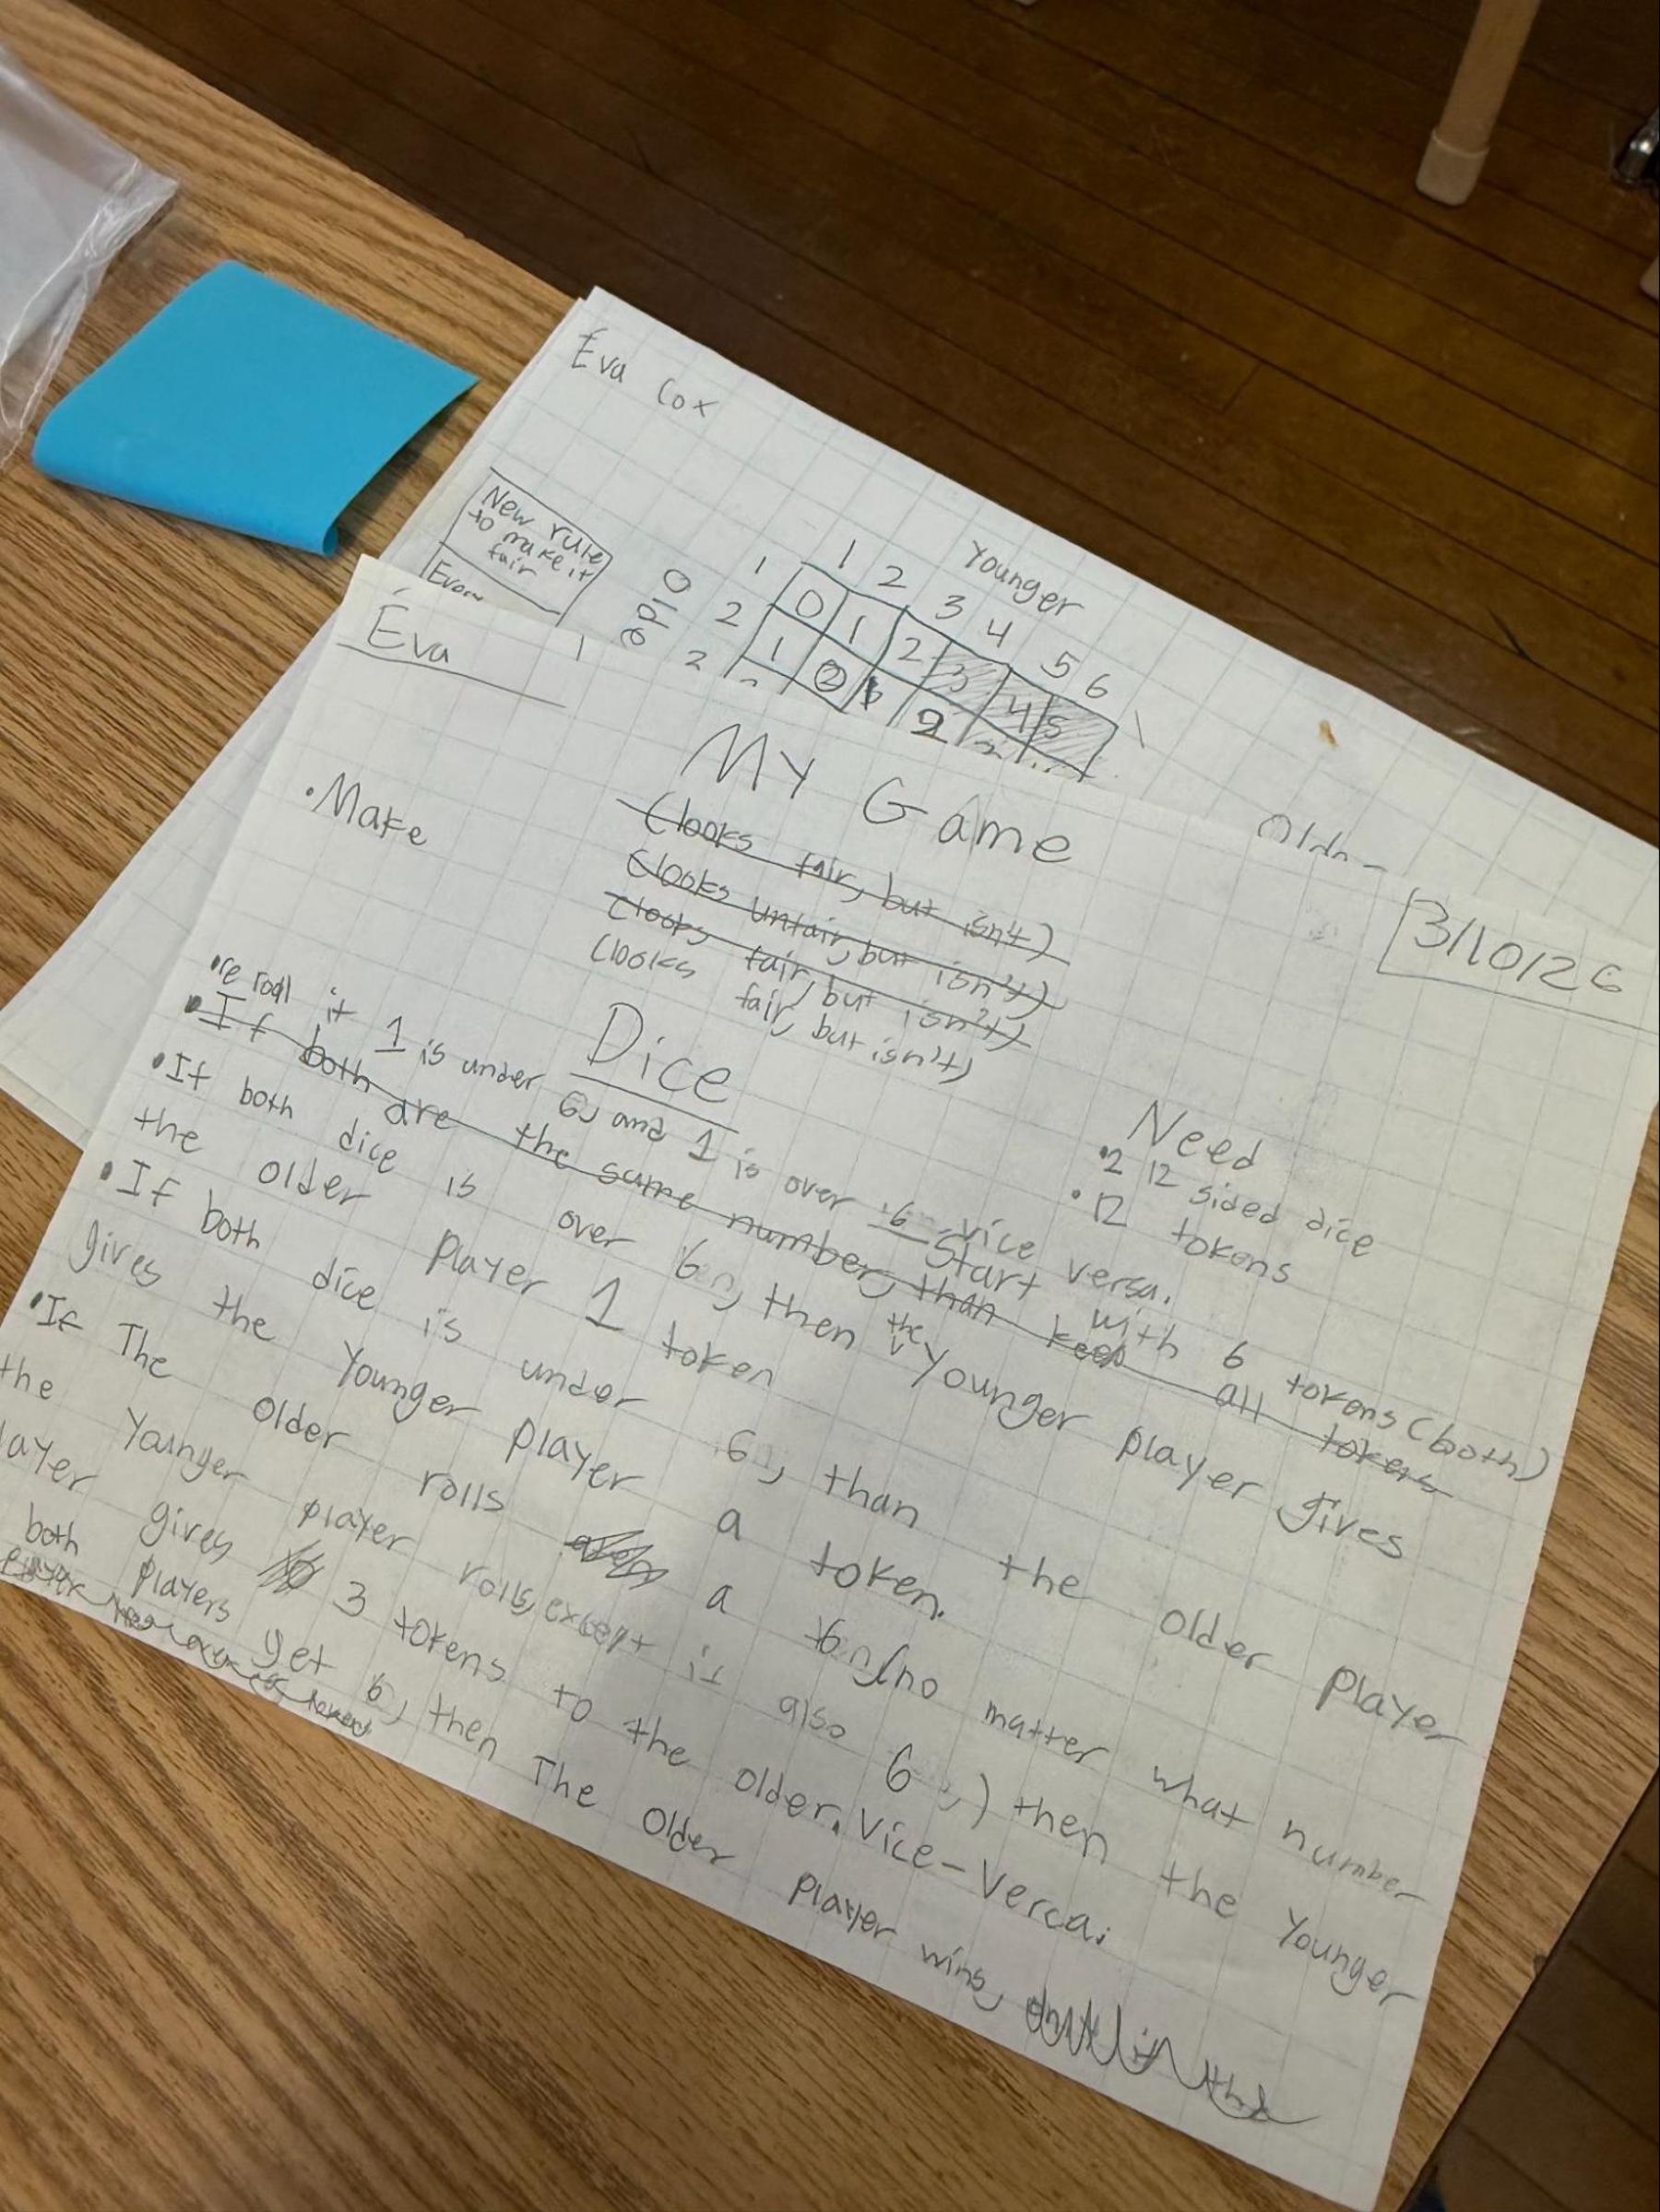 Eva Cox
New rule
to make it
fair
Younger
1 2 3 4 5 6
Older
1 0 1 2 3 4 5
2 1 2
2
Éva
3/10/26
My Game
• Make
(looks fair, but isn't)
(looks unfair, but isn't)
(looks fair, but isn't)
(looks fair, but isn't)
Dice
Need
• 2 12 sided dice
• 12 tokens
Start with 6 tokens (both)
• re roll if 1 is under 6, and 1 is over 6 vice versa.
• If both are the same number, than keep all tokens
• If both dice is over 6, then the younger player gives
the older player 1 token
• If both dice is under 6, than the older player
gives the younger player a token.
• If The older rolls a 6 (no matter what number
the younger player rolls, except if also 6) then the younger
layer gives 3 tokens to the older. Vice-Verca.
both players get 6, then The older player wins,